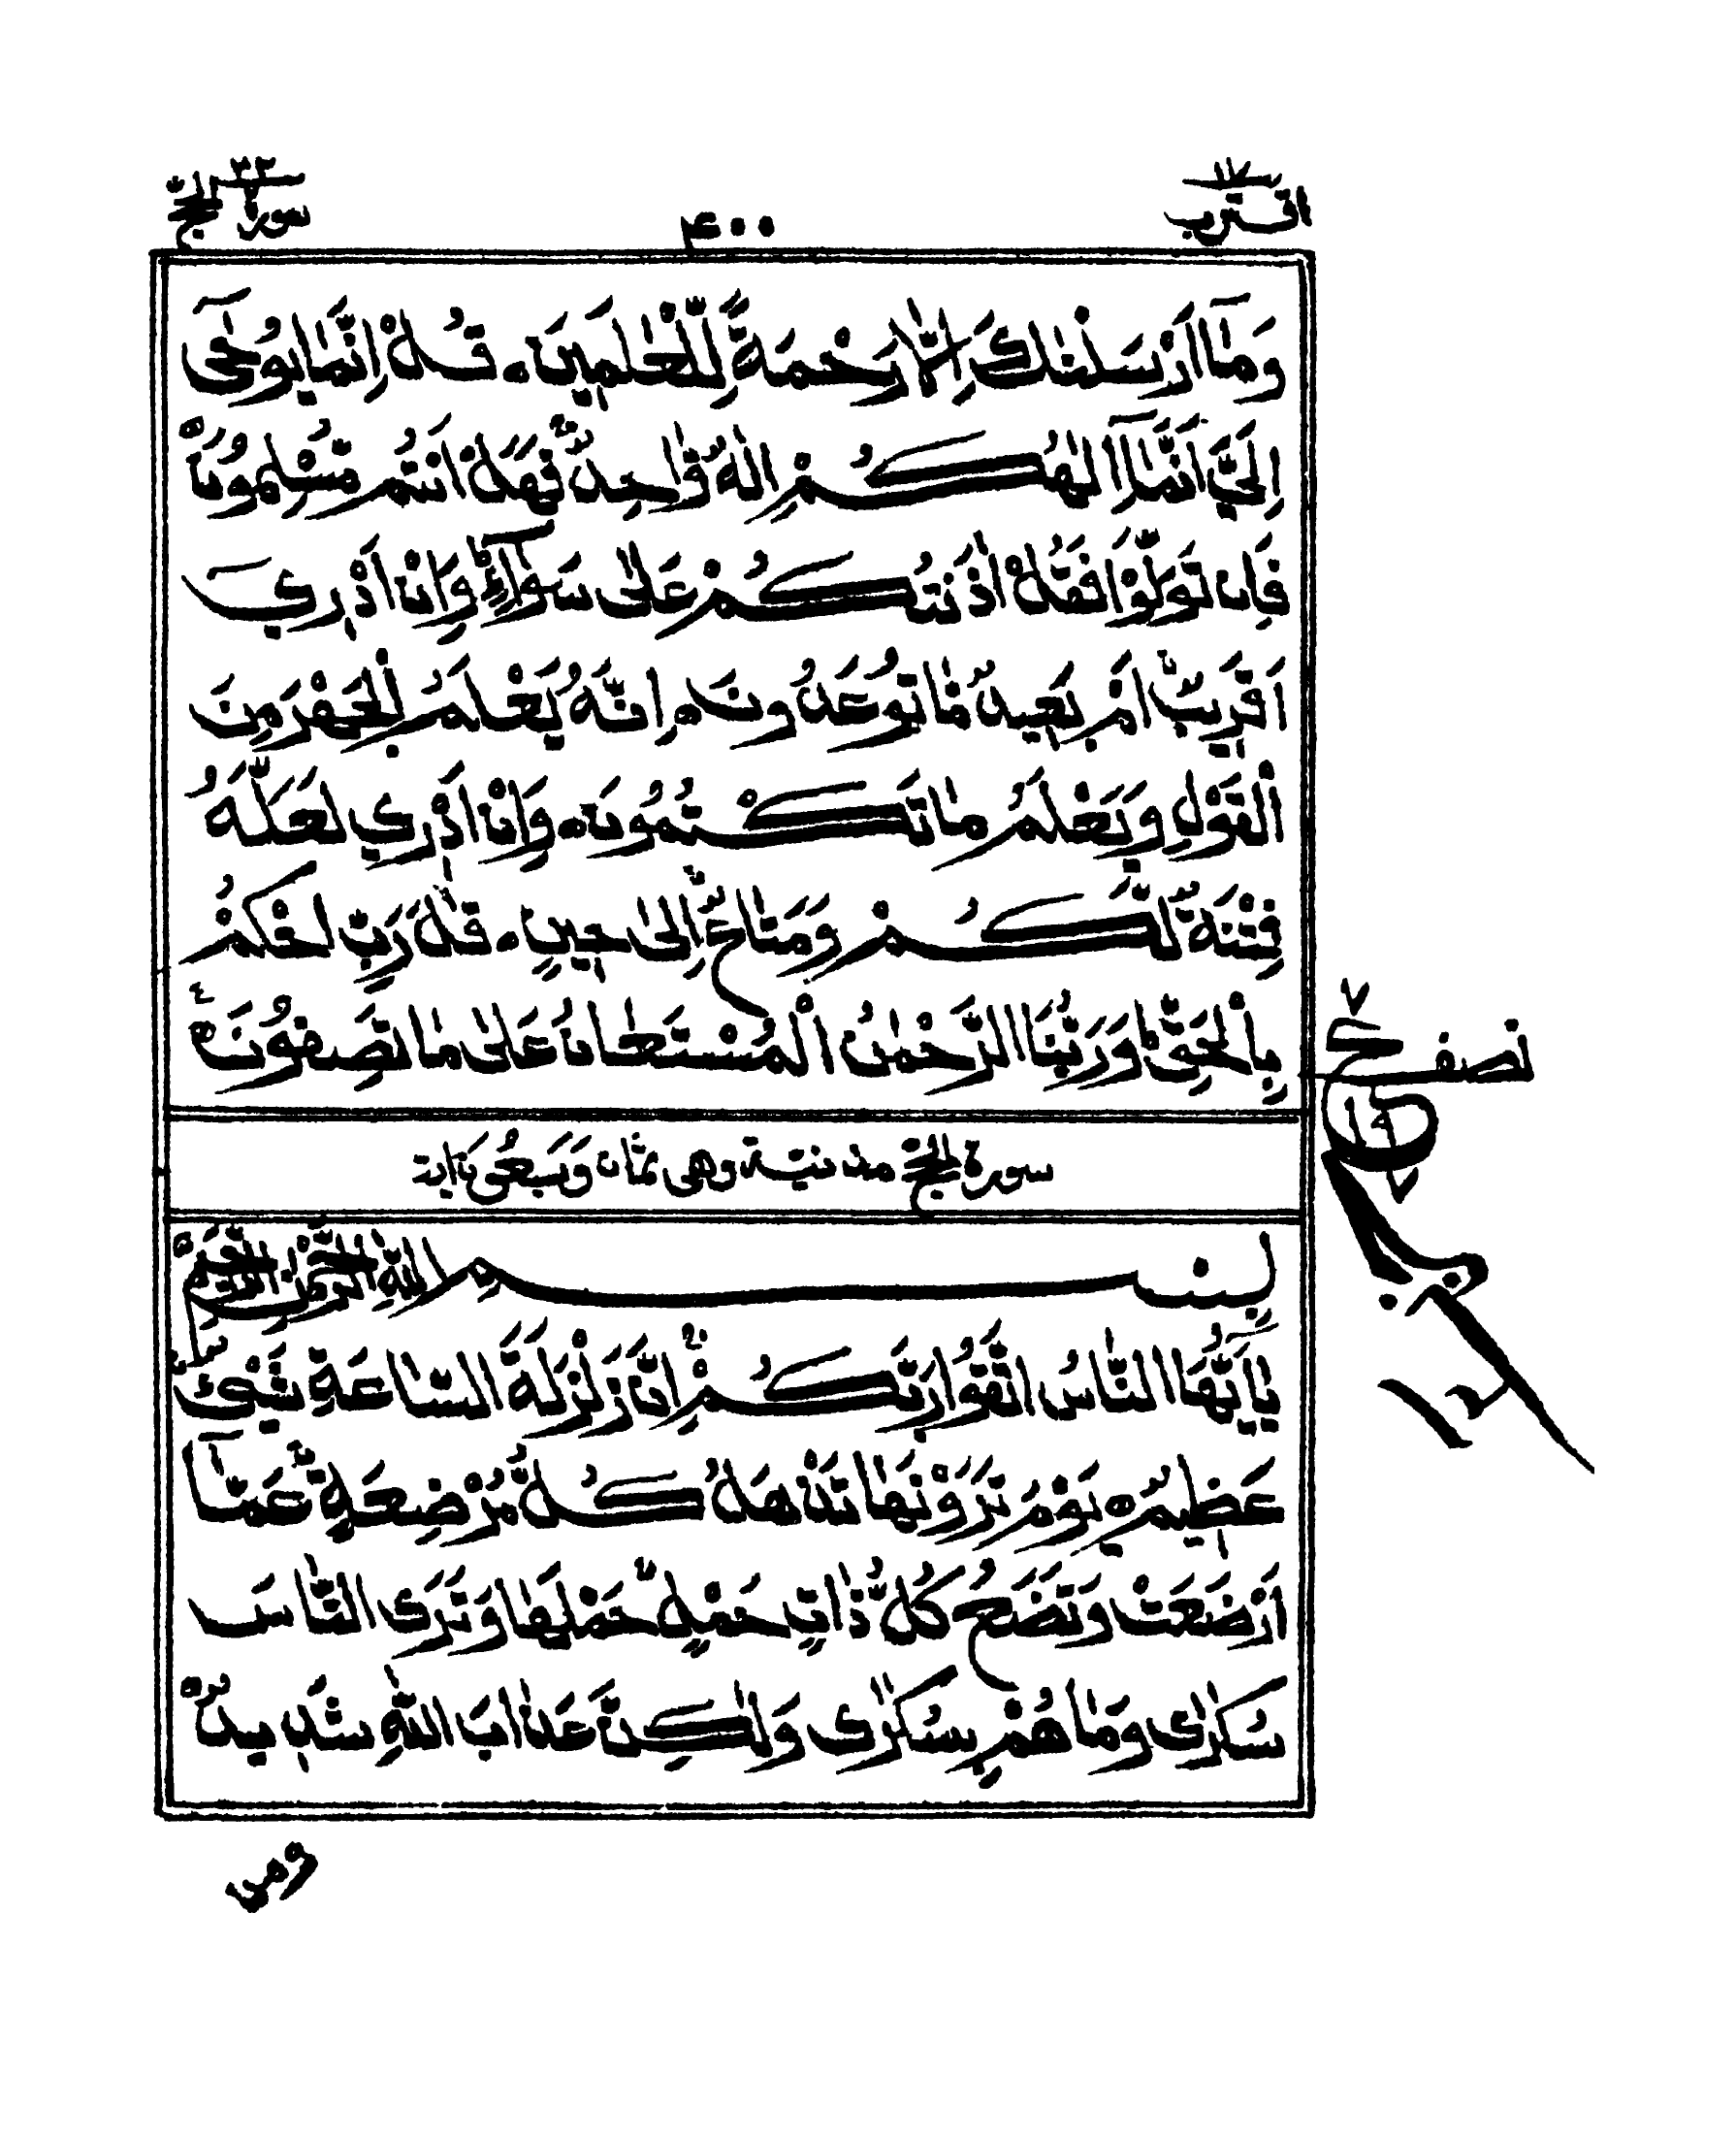 اقترب ١٧
۴۰۰
سورة الحج ٢٢
وَمَآ اَرْسَلْنٰكَ اِلَّا رَحْمَةً لِّلْعٰلَمِيْنَ ۰ قُلْ اِنَّمَا يُوْحٰىٓ
اِلَيَّ اَنَّمَآ اِلٰهُكُمْ اِلٰهٌ وَّاحِدٌ ۚ فَهَلْ اَنْتُمْ مُّسْلِمُوْنَ ۰
فَاِنْ تَوَلَّوْا فَقُلْ اٰذَنْتُكُمْ عَلٰى سَوَآءٍ ؕ وَاِنْ اَدْرِيْٓ
اَقَرِيْبٌ اَمْ بَعِيْدٌ مَّا تُوْعَدُوْنَ ۰ اِنَّهٗ يَعْلَمُ الْجَهْرَ مِنَ
الْقَوْلِ وَيَعْلَمُ مَا تَكْتُمُوْنَ ۰ وَاِنْ اَدْرِيْ لَعَلَّهٗ
فِتْنَةٌ لَّكُمْ وَمَتَاعٌ اِلٰى حِيْنٍ ۰ قٰلَ رَبِّ احْكُمْ
بِالْحَقِّ ؕ وَرَبُّنَا الرَّحْمٰنُ الْمُسْتَعَانُ عَلٰى مَا تَصِفُوْنَ ۰
نصف
ع
٧
١٩
٧
سورة الحج مدنية وهى ثمان وَسَبعُون اية
بِسْمِ اللّٰهِ الرَّحْمٰنِ الرَّحِيْمِ
يٰٓاَيُّهَا النَّاسُ اتَّقُوْا رَبَّكُمْ ۚ اِنَّ زَلْزَلَةَ السَّاعَةِ شَيْءٌ
عَظِيْمٌ ۰ يَوْمَ تَرَوْنَهَا تَذْهَلُ كُلُّ مُرْضِعَةٍ عَمَّآ
اَرْضَعَتْ وَتَضَعُ كُلُّ ذَاتِ حَمْلٍ حَمْلَهَا وَتَرَى النَّاسَ
سُكٰرٰى وَمَا هُمْ بِسُكٰرٰى وَلٰكِنَّ عَذَابَ اللّٰهِ شَدِيْدٌ ۰
ومن